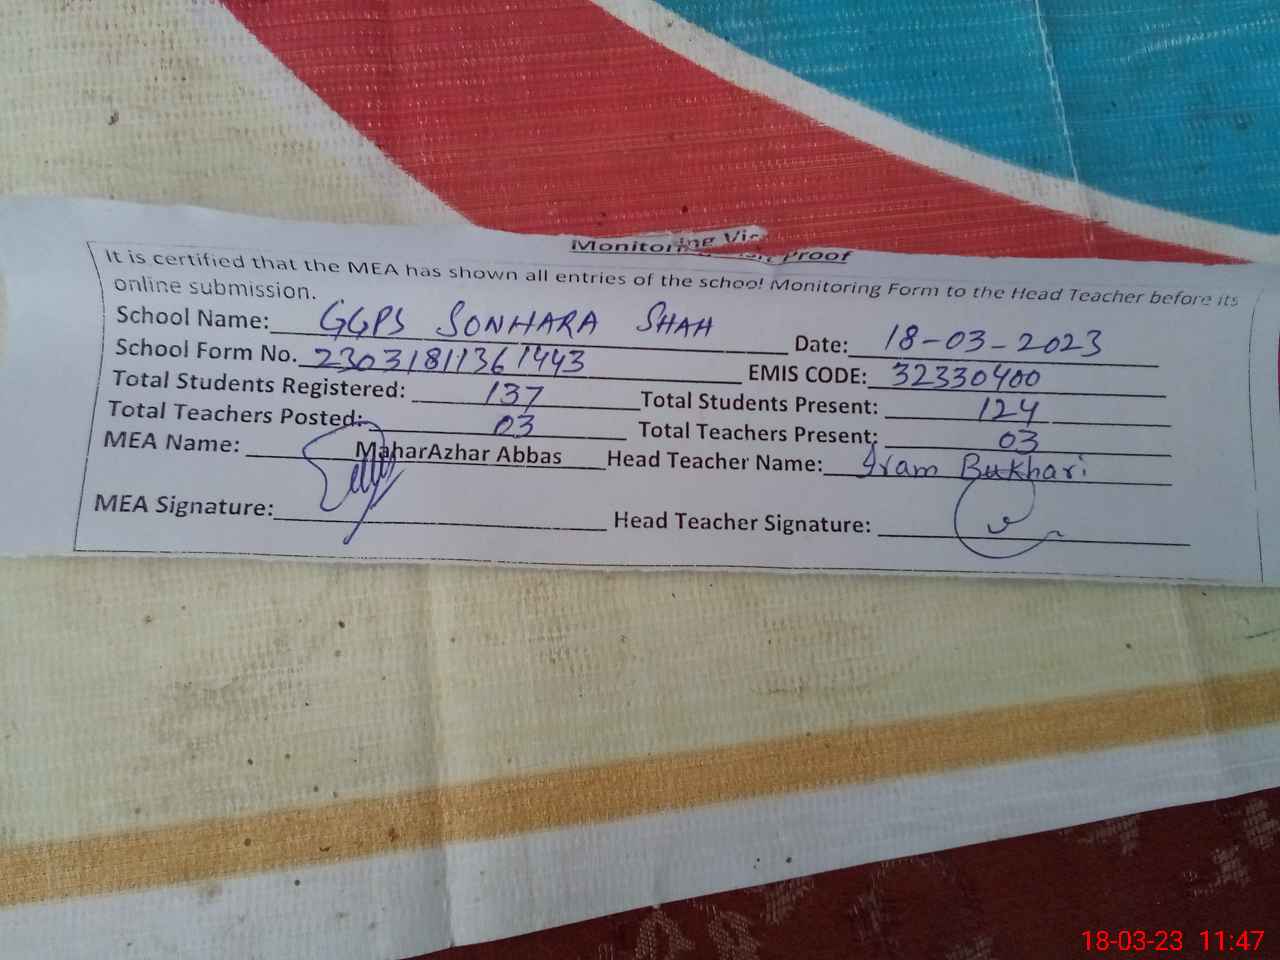 Monitoring Visit Proof
It is certified that the MEA has shown all entries of the school Monitoring Form to the Head Teacher before its
online submission.
School Name: GGPS SONHARA SHAH Date: 18-03-2023
School Form No. 23031811361443 EMIS CODE: 32330400
Total Students Registered: 137 Total Students Present: 124
Total Teachers Posted: 03 Total Teachers Present: 03
MEA Name: MaharAzhar Abbas Head Teacher Name: Iram Bukhari
MEA Signature: Head Teacher Signature:
18-03-23 11:47